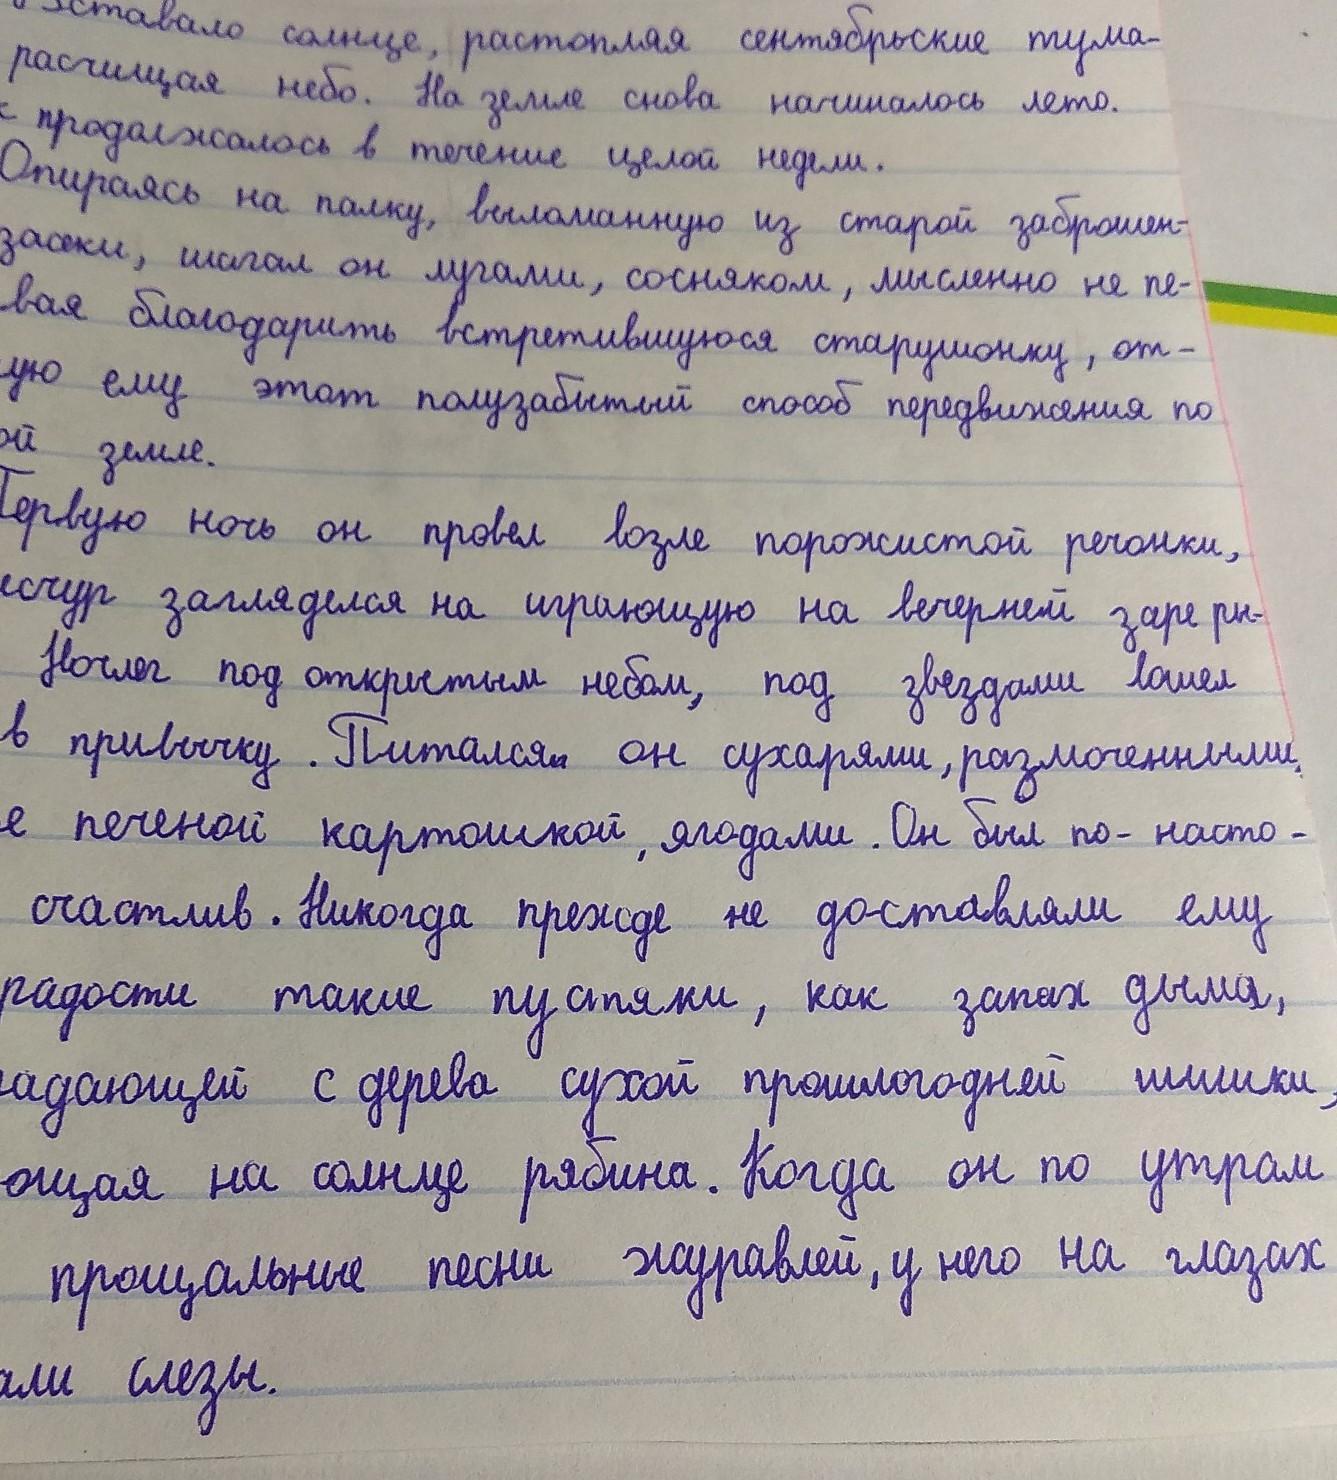 вставало солнце, растопляя сентябрьские тума-
расчищая небо. На земле снова начиналось лето.
к продолжалось в течение целой недели.
Опираясь на палку, выломанную из старой заброшен-
засеки, шагал он лугами, сосняком, мысленно не пе-
вая благодарить встретившуюся старушонку, от-
ую ему этот полузабытый способ передвижения по
ой земле.
Первую ночь он провел возле порожистой речонки,
счур загляделся на играющую на вечерней заре ры-
Ночлег под открытым небом, под звездами вошел
в привычку. Питался он сухарями, размоченными,
е печеной картошкой, ягодами. Он был по-насто-
счастлив. Никогда прежде не доставляли ему
радости такие пустяки, как запах дыма,
адающей с дерева сухой прошлогодней шишки,
ющая на солнце рябина. Когда он по утрам
прощальные песни журавлей, у него на глазах
али слезы.